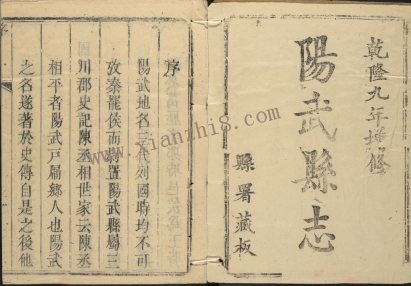 乾隆九年
修
陽武縣志
縣署藏板
序
陽武地名三代列國時均不可
攷秦罷侯而
置陽武縣屬三
川郡史記陳丞相世家云陳丞
相平者陽武戶牖鄉人也陽武
之名遂著於史傳自是之後他
www.xianzhi8.com